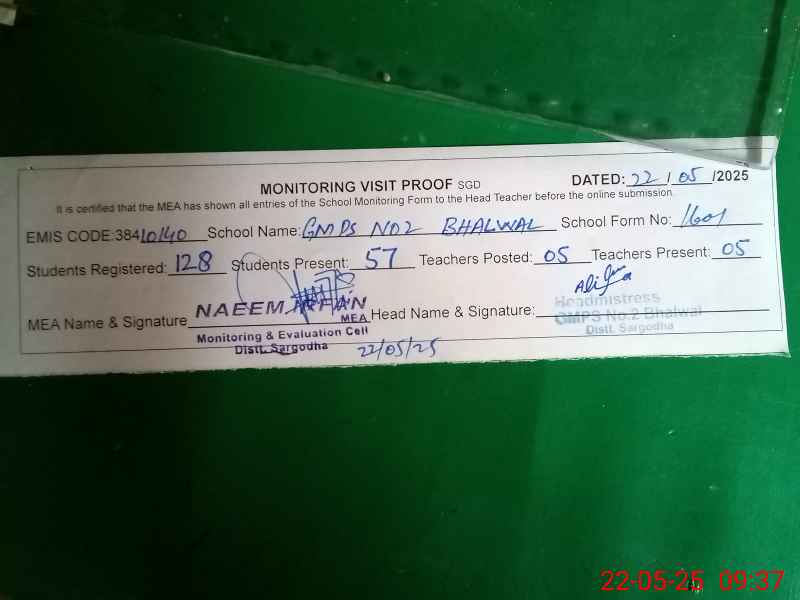 MONITORING VISIT PROOF SGD DATED: 22 / 05 /2025
It is certified that the MEA has shown all entries of the School Monitoring Form to the Head Teacher before the online submission.
EMIS CODE:38410140 School Name: GMPS NO2 BHALWAL School Form No: 1601
Students Registered: 128 Students Present: 57 Teachers Posted: 05 Teachers Present: 05
MEA Name & Signature NAEEM IRFAN MEA Head Name & Signature:
Monitoring & Evaluation Cell
Distt. Sargodha
22/05/25
Headmistress
GMPS No.2 Bhalwal
Distt. Sargodha
22-05-25 09:37